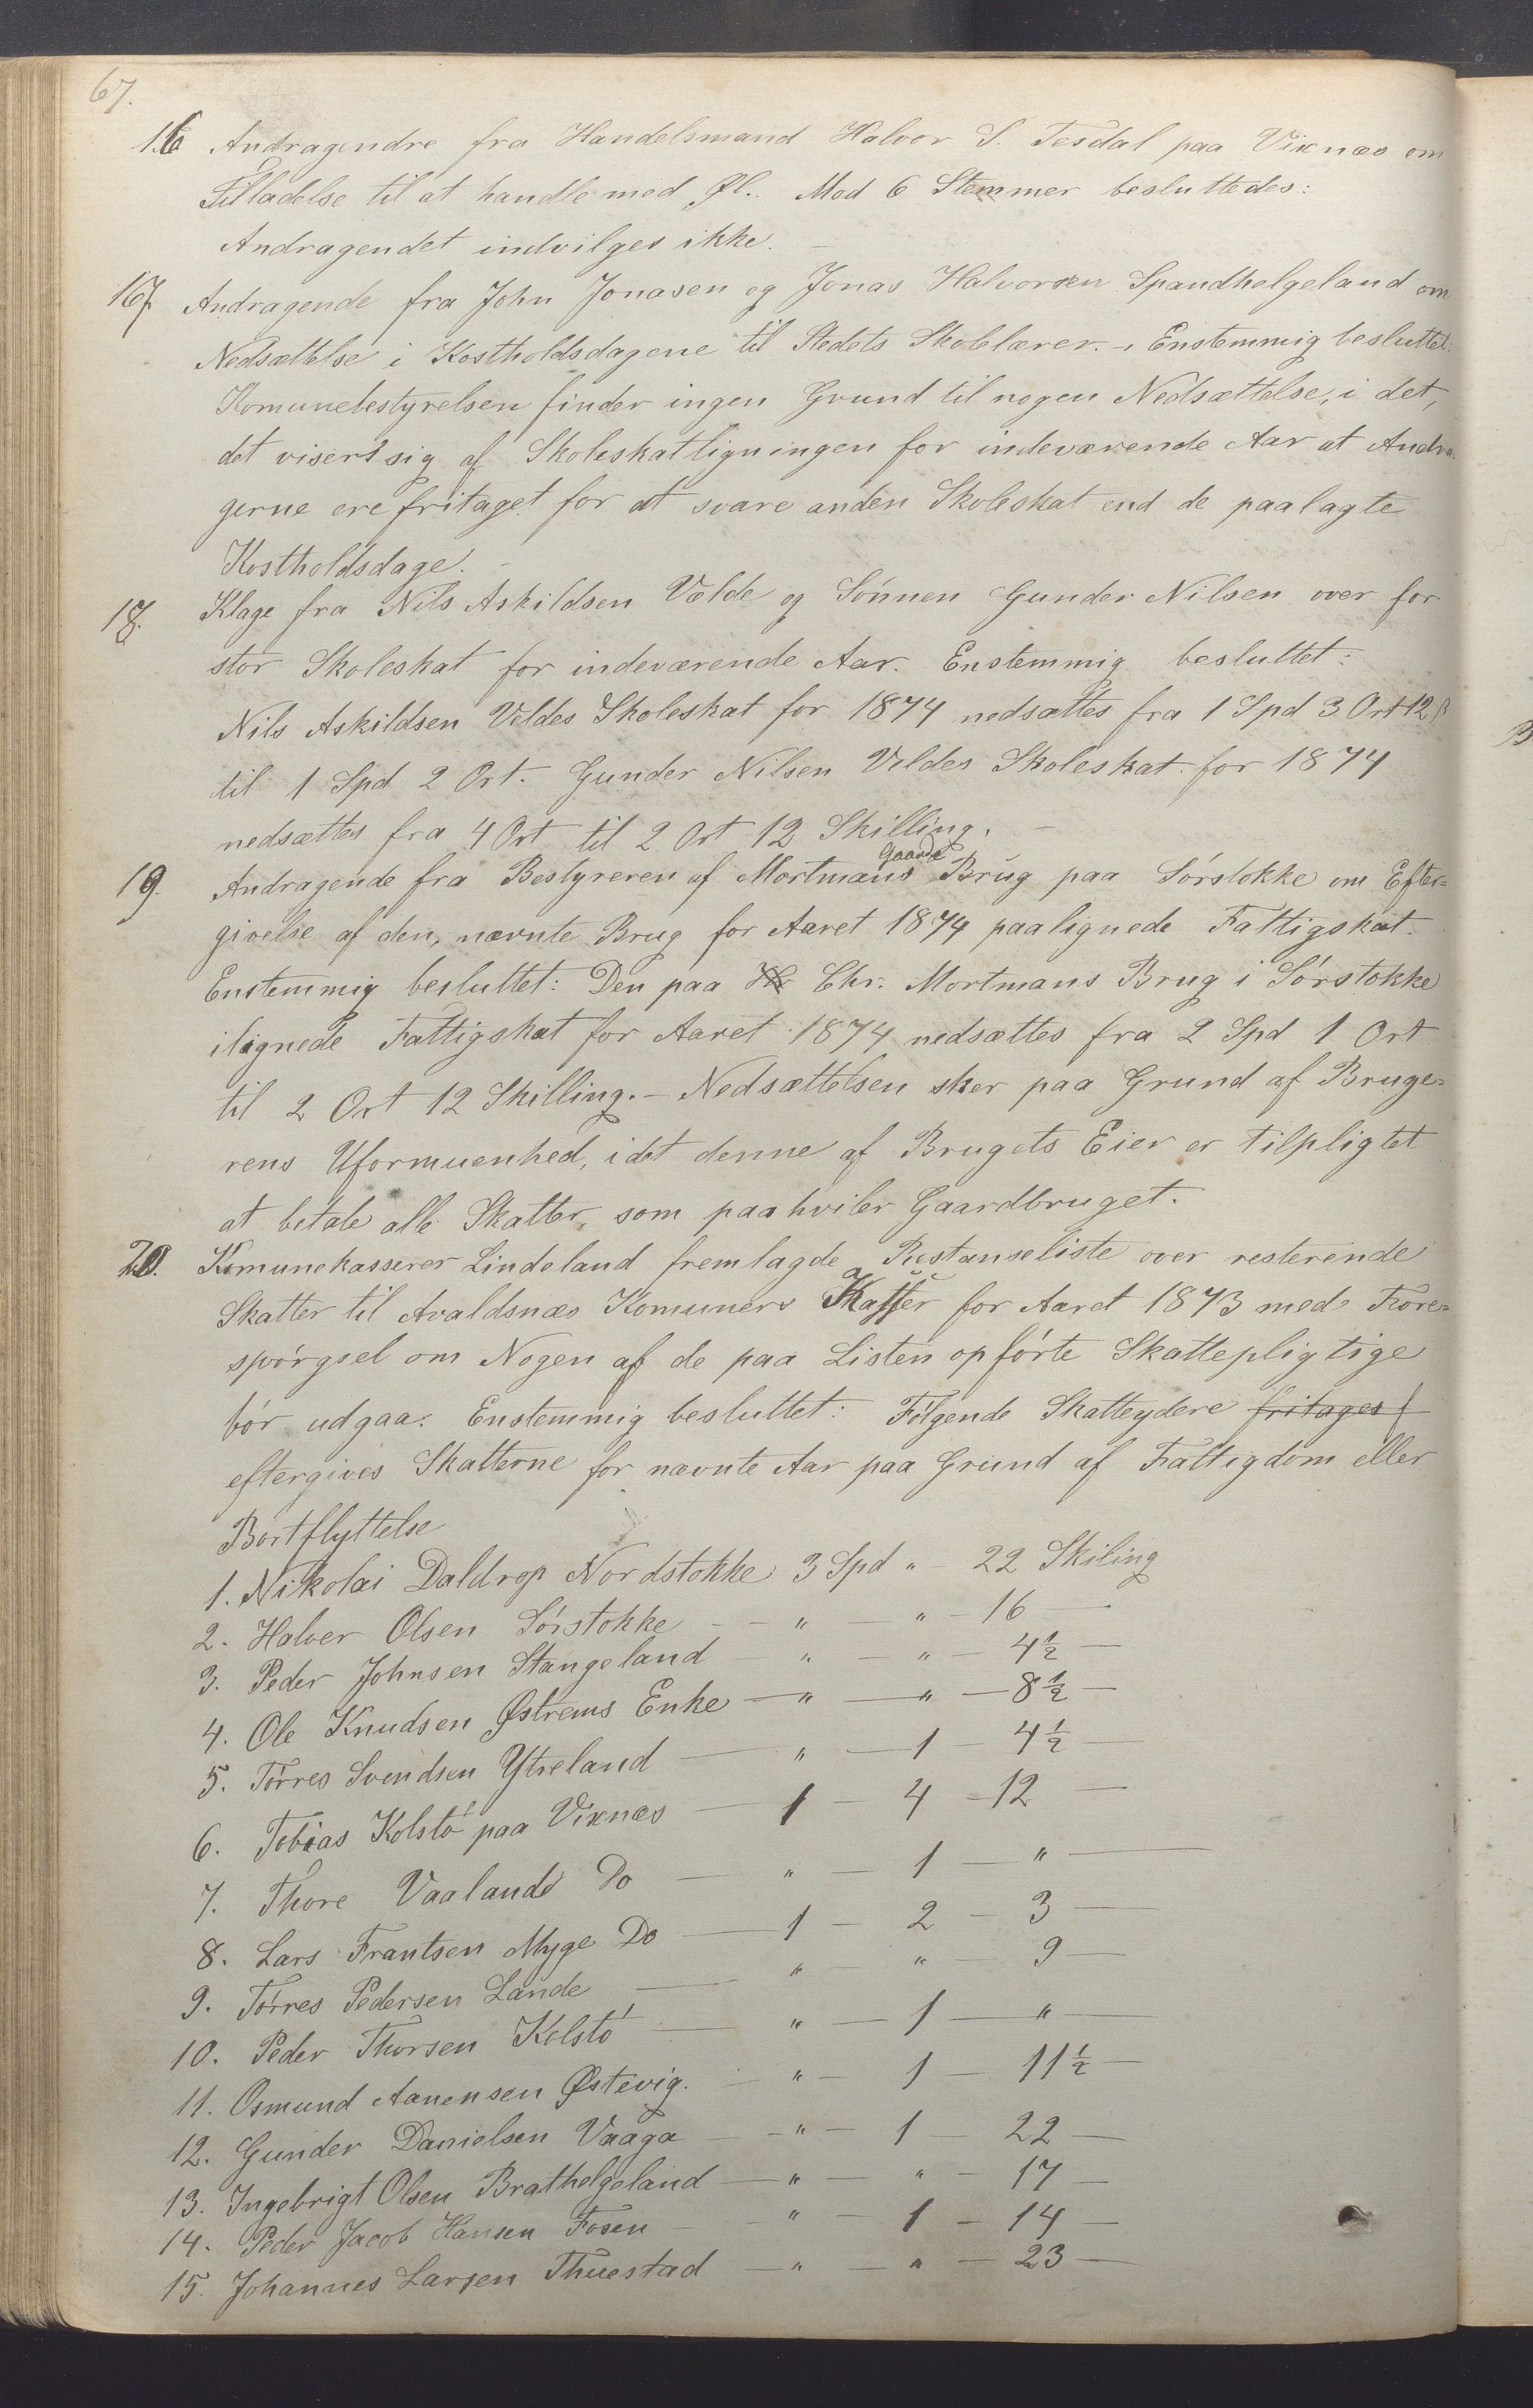 67.
16 Andragendre fra Handelsmand Halvor S. Tesdal paa Vixnæs om
Tilladelse til at handle med Øl.. Mod 6 Stemmer besluttedes:
Andragendet indvilges ikke. —
17. Andragende fra John Jonasen og Jonas Halvorsen Spandhelgeland om
Nedsættelse i Kostholdsdagene til Stedets Skolelærer. — Enstemmig besluttet:
Komunebestyrelsen finder ingen Grund til nogen Nedsættelse, i det,
det viser sig af Skoleskatligningen for indeværende Aar at Andra-
gerne ere fritaget for at svare anden Skoleskat end de paalagte
Kostholdsdage. —
18. Klage fra Nils Askildsen Velde og Sønnen Gunder Nilsen over for
stor Skoleskat for indeværende Aar. Enstemmig besluttet:
Nils Askildsen Veldes Skoleskat for 1874 nedsættes fra 1 Spd 3 Ort 12 ß
til 1 Spd 2 Ort. Gunder Nilsen Veldes Skoleskat for 1874
nedsættes fra 4 Ort til 2 Ort 12 Skilling. —
19. Andragende fra Bestyreren af Mortmans Gaards Brug paa Sørstokke om Efter=
givelse af den, nævnte Brug for Aaret 1874 paalignede Fattigskat.
Enstemmig besluttet: Den paa Chr. Mortmans Brug i Sørstokke
ilignede Fattigskat for Aaret 1874 nedsættes fra 2 Spd 1 Ort
til 2 Ort 12 Skilling. — Nedsættelsen sker paa Grund af Bruge=
rens Uformuenhed, idet denne af Brugets Eier er tilpligtet
at betale alle Skatter, som paahviler Gaardbruget.
20. Komunekasserer Lindeland fremlagde Restanseliste over resterende
Skatter til Avaldsnæs Komuners Kasser for Aaret 1873 med Fore=
spørgsel om Nogen af de paa Listen opførte Skattepligtige
bør udgaa. Enstemmig besluttet: Følgende Skatteydere fritages f
eftergives Skatterne for nævnte Aar paa Grund af Fattigdom eller
Bortflyttelse
1. Nikolai Daldrop Nordstokke 3 Spd " — 22 Skiling
2. Halver Olsen Sørstokke — " — " — 16 —
3. Peder Johnsen Stangeland — " — " — 4½ —
4. Ole Knudsen Østrems Enke — " — " — 8½ —
5. Tørres Svendsen Ytreland — " — 1 — 4½ —
6. Tobias Kolstø paa Vixnæs — 1 — 4 — 12 —
7. Thore Vaalande Do — " — 1 — " —
8. Lars Frantsen Myge Do — 1 — 2 — 3 —
9. Tørres Pedersen Lande — " — " — 9 —
10. Peder Thorsen Kolstø — " — 1 — " —
11. Osmund Aanensen Østevig. — " — 1 — 11½ —
12. Gunder Danielsen Vaaga — " — 1 — 22 —
13. Ingebrigt Olsen Brathelgeland — " — " — 17 —
14. Peder Jacob Hansen Fosen — " — 1 — 14 —
15. Johannes Larsen Thuestad — " — " — 23 —
B